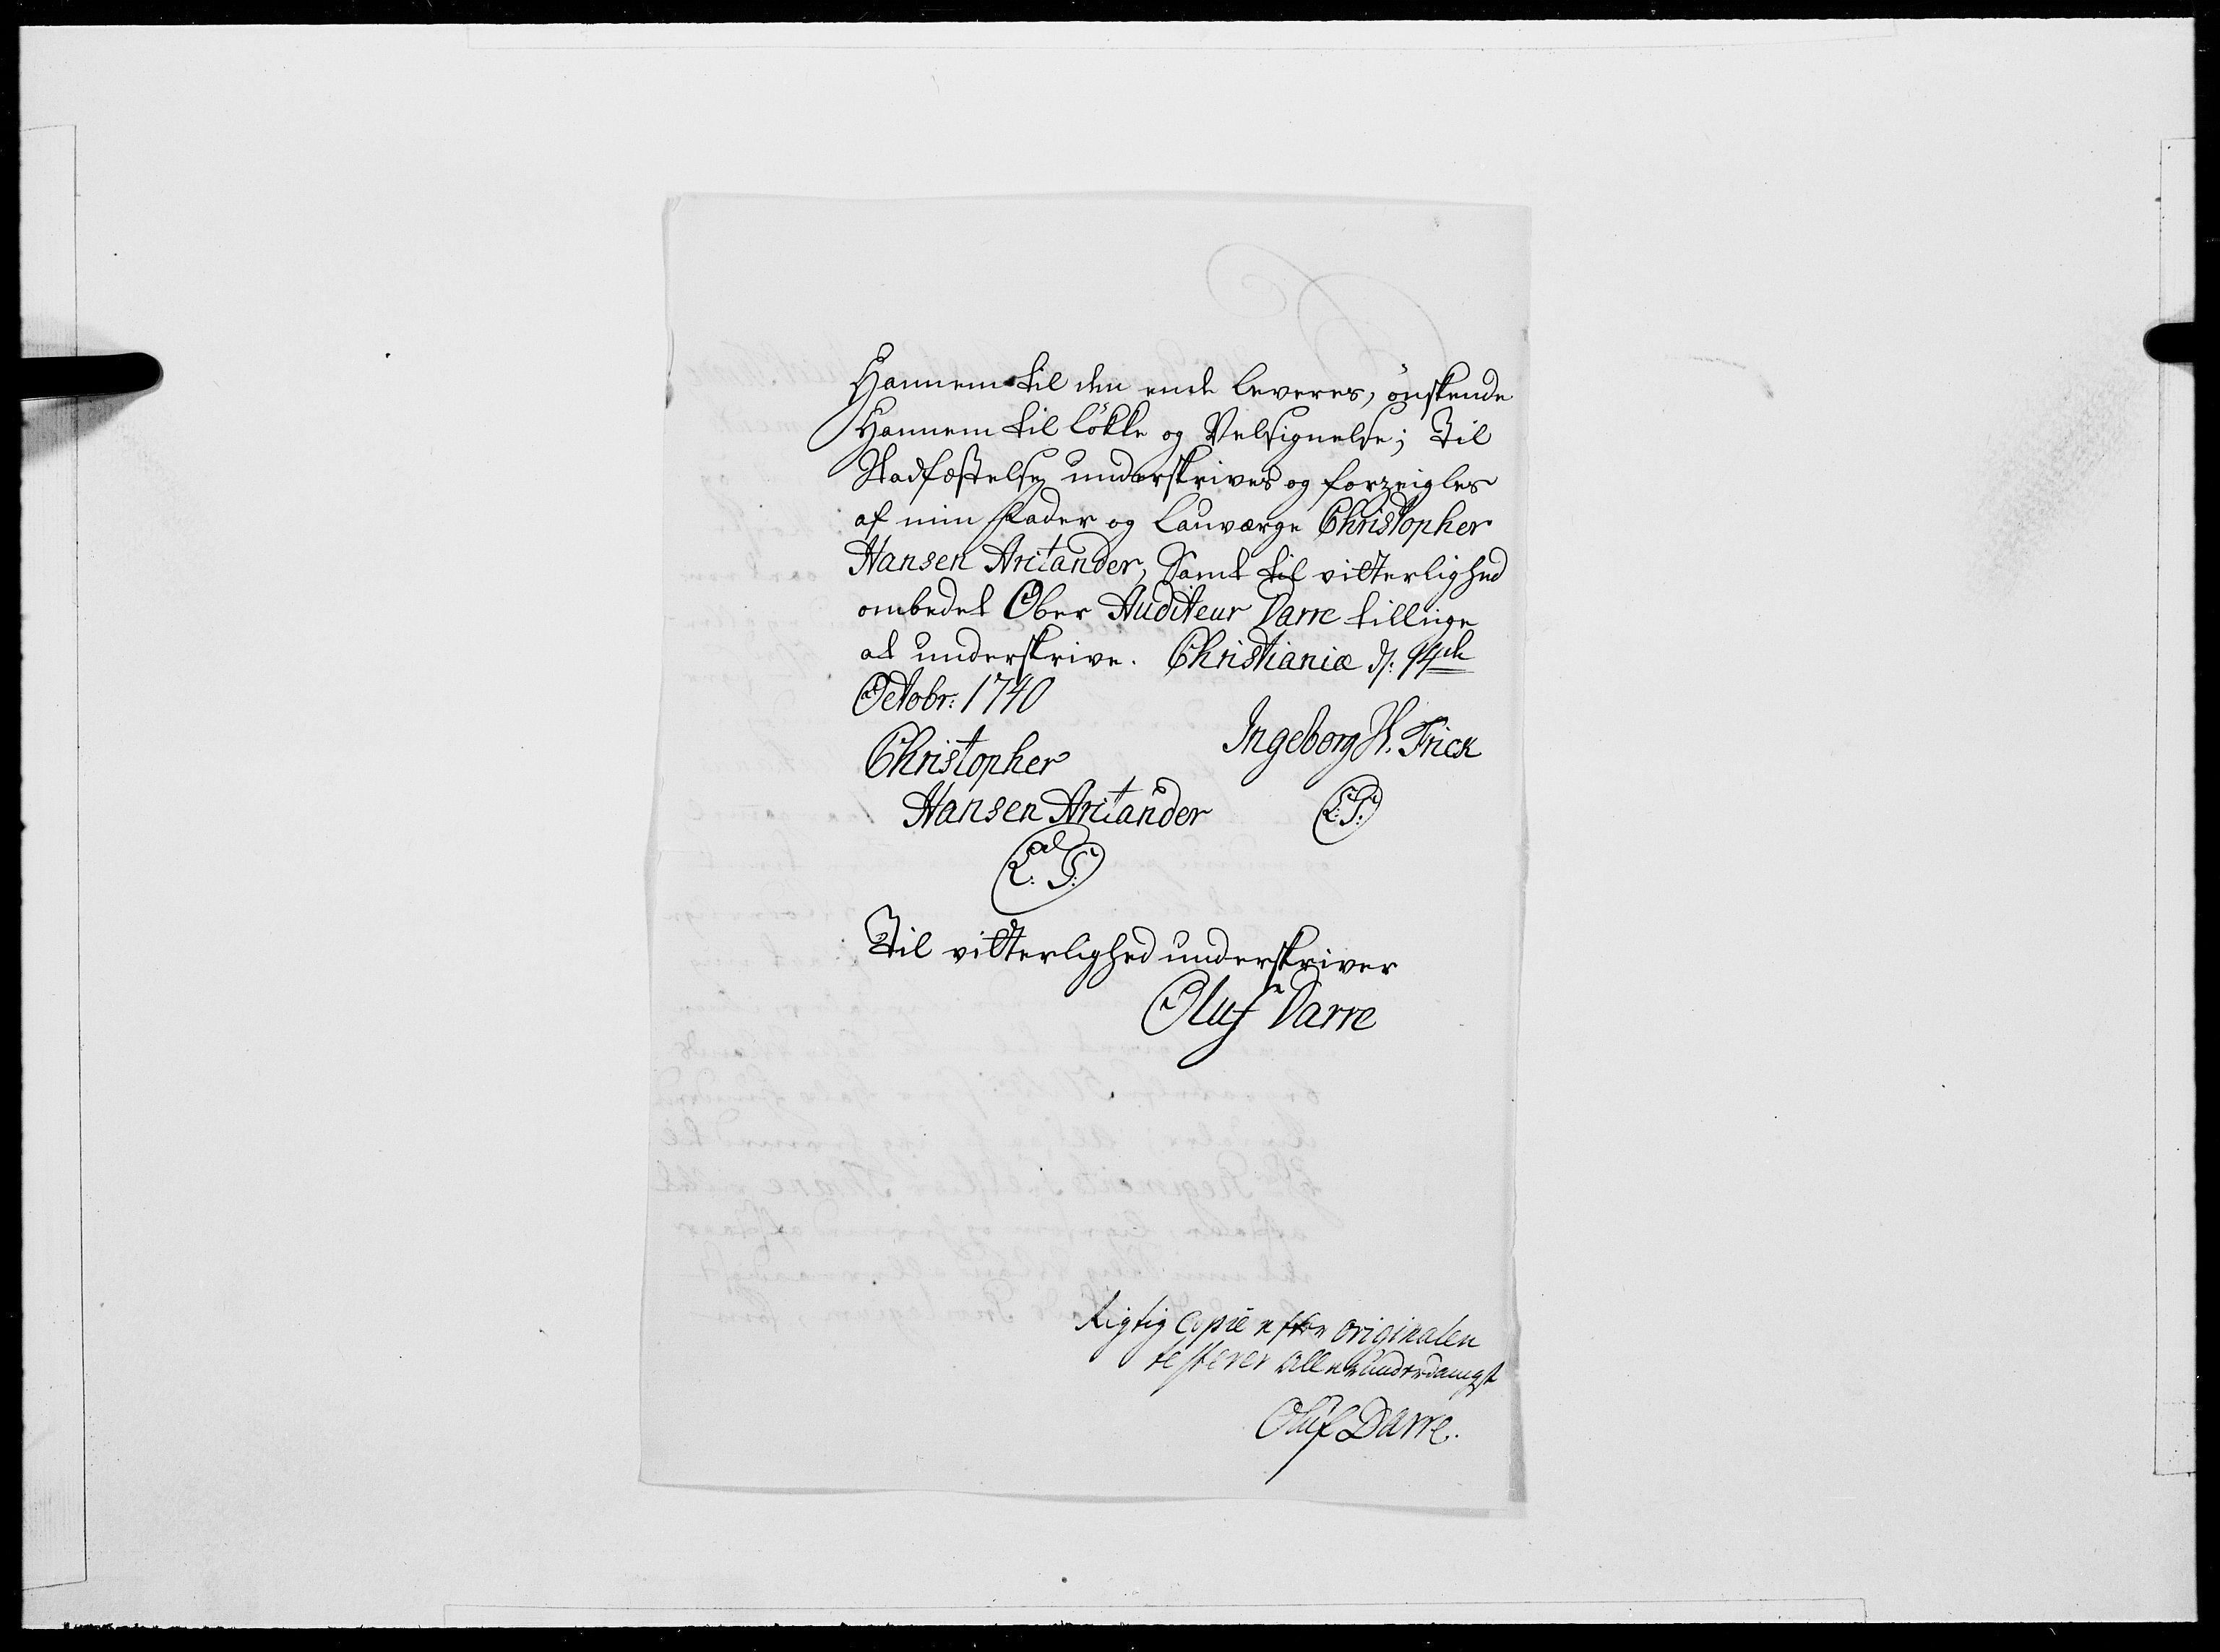 Hannem til den ende leveres, önskende
Hannem til lökke og Velsignelse; Til
Stadfæstelse underskrives og forzeigles
af min Fader og lauværge Christopher
Hansen Aritander, Samt til vitterlighed
ombedet Ober Auditeur Darre tillige
at underskrive. Christiania d: 14de
Octobr: 1740
Ingeborg H. Frick
Christopher
Hansen Aritander
L:S:
L:S:
Til vitterlighed underskriver
Oluf Darre
Rigtig Copie efter originalen
testerer allerunderdanigst
Oluf Darre.